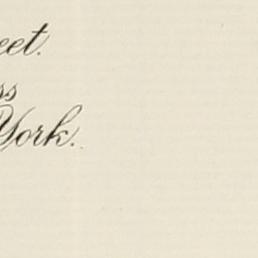 eet.
ss
York.